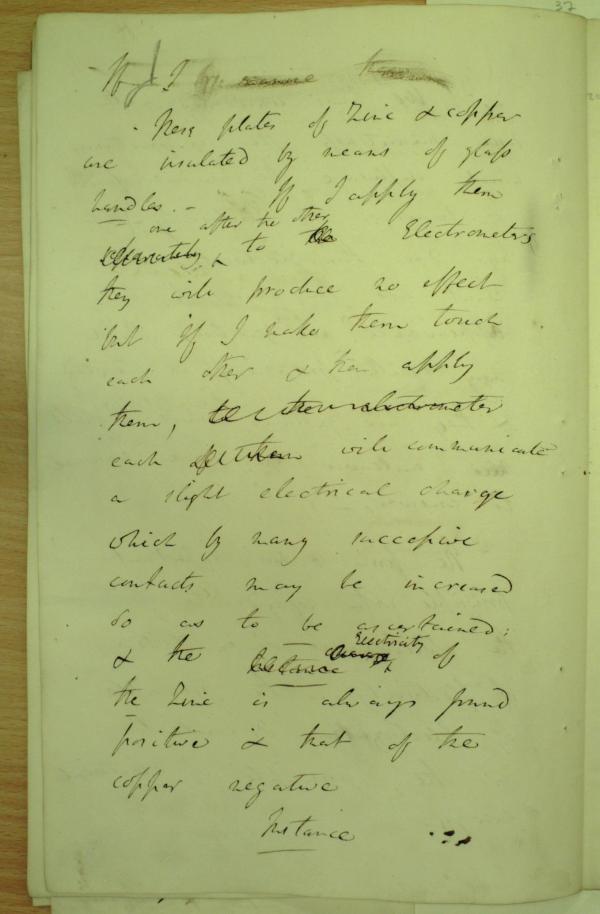 37
If I
- These plates of Zinc & copper
are insulated by means of glass
handles. - If I apply them
one after the other
separately, & to the Electrometers
they will produce no effect
but if I make them touch
each other & then apply
them, to the electrometer
each of them will communicate
a slight electrical charge
which by many successive
contacts may be increased
so as to be ascertained;
Electricity
& the balance charge of
the Zinc is always found
positive & that of the
copper negative
Instance